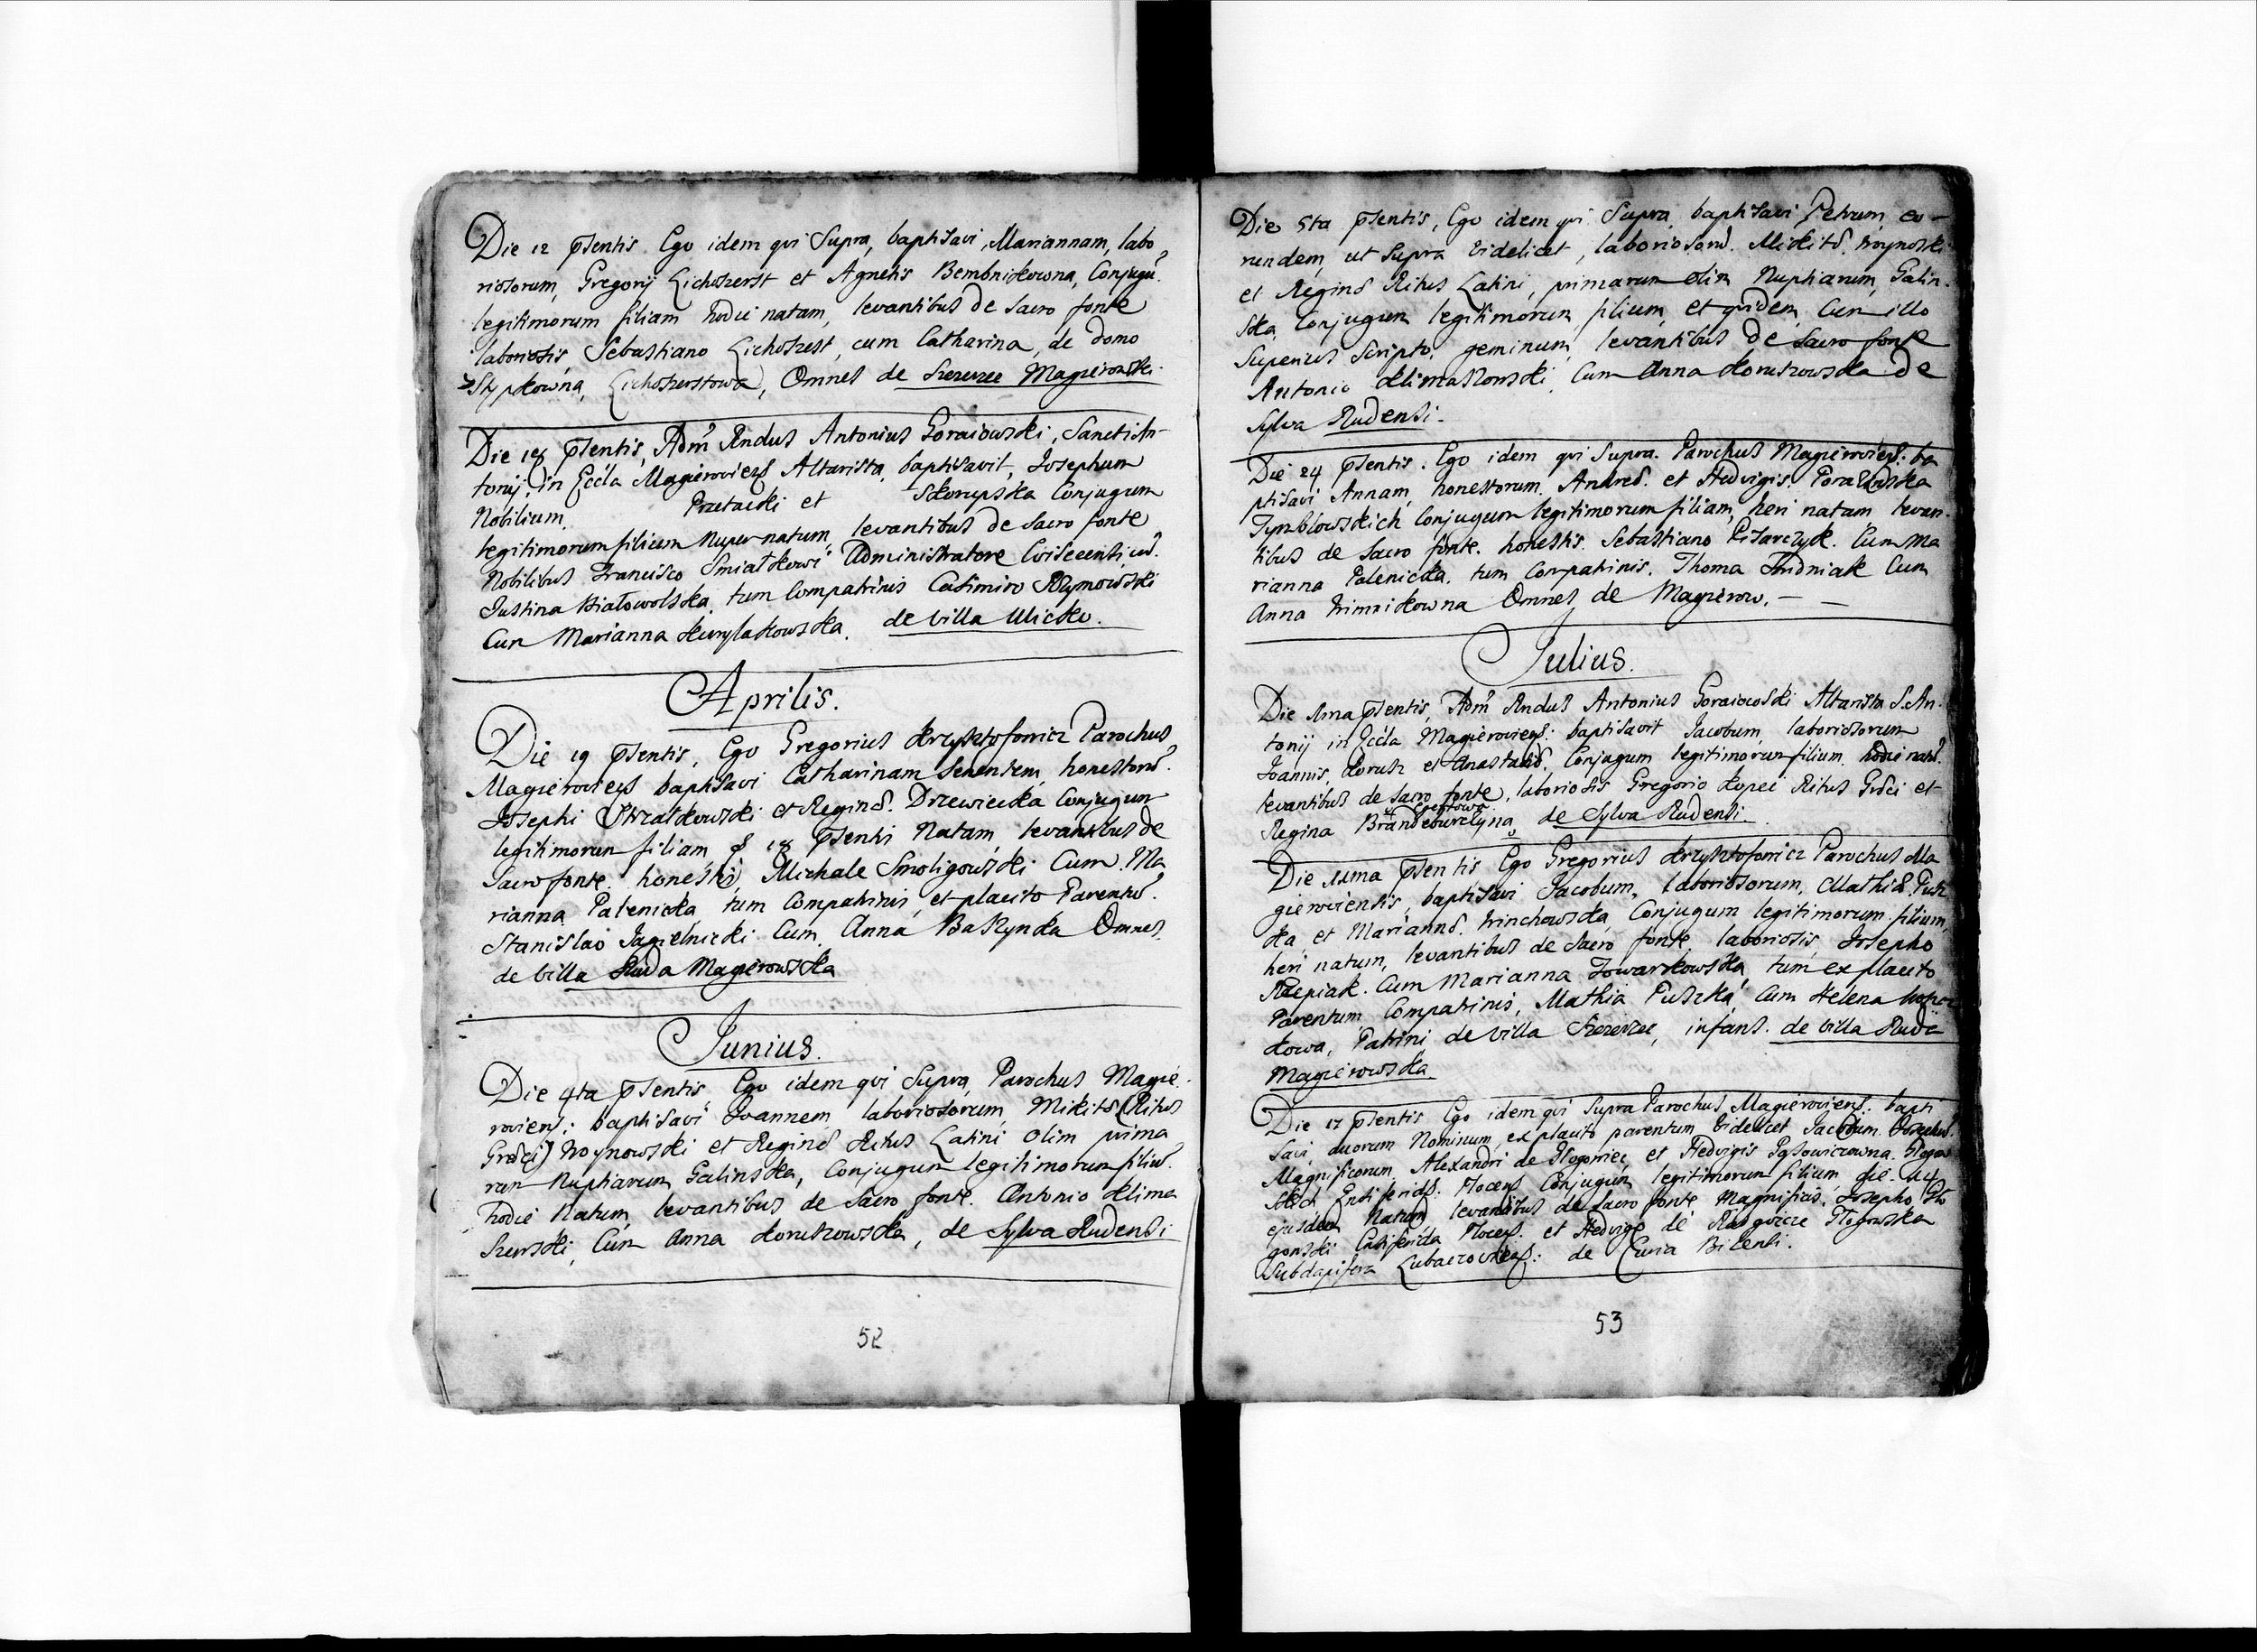 Die 12 pſentis Ego idem qui Supra, baptiſavi, Mariannam, labo
rioſorum, Gregorij Lichoherst et Agnetis Bembnikowna, Conjugũ.
legitimorum filiam hodie natam, levantibus de Sacro fonte
laboriosis Sebastiano, cum Catharina, de domo
Omnes de Szczerzec Magierowski.
Die 18 pſentis, Adm̃ Rndus Antonius Goraiowski, Sancti An-
tonij, in Eccla Magierovieñ Altarista, baptisavit, Josephum
Nobilium, et Skorupska Conjugum
legitimorum filium nuper natum, levantibus de Sacro fonte
Nobilibus Francisco Administratore
Justina Białowolska, tum Compatrinis Casimiro
Cum Marianna Kurylakowska. de Villa Ulicko.
Aprilis.
Die 19 pſentis, Ego Gregorius Krzysztofowicz Parochus
Magierovieñ baptisavi Catharinam Senensem, honestorũ.
Josephi Strzałkowski et Reginæ. Drzewiecka Conjugum
legitimorum filiam 18 pſentis Natam, levantibus de
Sacro fonte honestis Michale Smoligowski Cum Ma
rianna Palenicka, tum Compatrinis, et placito Parentũ.
Stanislao Jagielnicki Cum Anna Omnes
de Villa Ruda Magierowska
Junius.
Die 4ta pſentis, Ego idem qui Supra, Parochus Magie
rovieñ: baptisavi Joannem, laboriosorum, Mikitæ (Ritus
Græci) Woynowski et Reginæ Ritus Latini olim prima
rum Nuptiarum Galinska, Conjugum legitimorum filiũ.
hodie Natum, levantibus de Sacro fonte. Antonio Klima
szewski, Cum Anna Koruszowska, de Sylva Rudensi
52
Die 5ta pſentis, Ego idem qui Supra, baptisavi Petrum, eo-
rundem, ut Supra Videlicet, laboriosorũ. Mikitæ Woynoski
et Reginæ Ritus Latini, primarum olim Nuptiarum, Galin-
ska Conjugum legitimorum, filium, et quidem, Cum illo
Superius Scripto, geminum, levantibus de Sacro fonte
Antonio Klimaszowski, Cum Anna Koruszowska de
Sylva Rudensi.
Die 24 pſentis. Ego idem qui Supra. Parochus Magierovieñ: ba
ptisavi Annam, honestorum. Andreæ. et Hedvigis.
Tymblowskich Conjugum legitimorum filiam, heri natam levan-
tibus de Sacro fonte. honestis. Sebastiano Pisarczyk. Cum Ma
rianna Palenicka. tum Compatrinis. Thoma Cum
Anna Omnes de Magierow.
Julius.
Die 1ma pſentis, Adm̃ Rndus Antonius Goraiowski Altarista S. An-
tonij in Eccla Magierovieñ: baptisavit Jacobum, laboriosorum
Joannis, Korusz et Anastasiæ. Conjugum legitimorum filium, hodie natũ.
levantibus de Sacro fonte, laboriosis Gregorio Kopei Ritus Græci et
Regina Brandeburczyna de Sylva Rudensi
Die 11ma pſentis Ego Gregorius Krzysztofowicz Parochus Ma
gieroviensis, baptisavi Jacobum, laboriosorum, Mathiæ Pusz
ka, et Mariannæ. Winchowska, Conjugum legitimorum filium,
heri natum, levantibus de Sacro fonte. laboriosis, Josepho
Rzepiak. Cum Marianna Towarkowska, tum ex placito
Parentum Compatrinis, Mathia Puszka, Cum Helena
kowa, Patrini de Villa Szczerzec, infans. de Villa Ruda
Magierowska.
Die 17 pſentis Ego idem qui Supra Parochus Magierovieñ: bapti
savi, duorum Nominum, ex placito parentum Videlicet Jacobum
Magnificorum, Alexandri de Głogowiec, et Hedvigis
Conjugum legitimorum filium die
ejusdem Natum levantibus de Sacro fonte Magnificis. Josepho Gło
gowski et Hedvige de Głogowska
Subdapifera de Curia
53